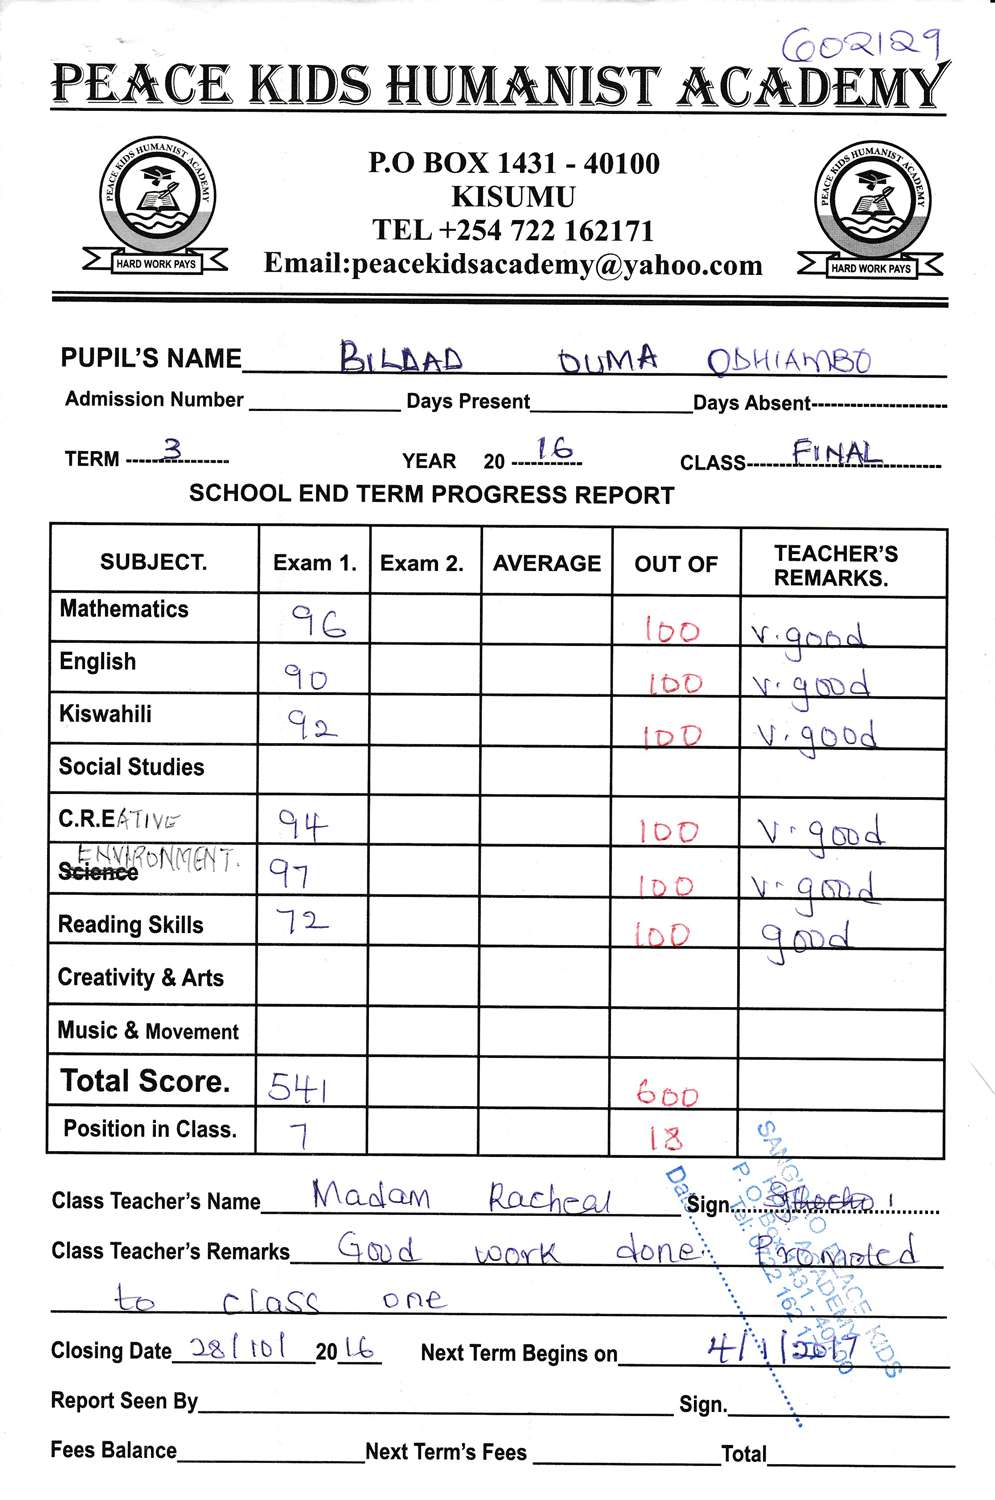 602129
PEACE KIDS HUMANIST ACADEMY
PEACE KIDS HUMANIST ACADEMY
HARD WORK PAYS
P.O BOX 1431 - 40100
KISUMU
TEL +254 722 162171
Email:peacekidsacademy@yahoo.com
PEACE KIDS HUMANIST ACADEMY
HARD WORK PAYS
PUPIL'S NAME BILDAD OUMA ODHIAMBO
Admission Number Days Present Days Absent
TERM 3 YEAR 20 16 CLASS FINAL
SCHOOL END TERM PROGRESS REPORT
SUBJECT. Exam 1. Exam 2. AVERAGE OUT OF TEACHER'S REMARKS.
Mathematics 96 100 v.good
English 90 100 v.good
Kiswahili 92 100 v.good
Social Studies
C.R.EATIVE 94 100 v.good
ENVIRONMENT.
Science 97 100 v.good
Reading Skills 72 100 good
Creativity & Arts
Music & Movement
Total Score. 541 600
Position in Class. 7 18
Class Teacher's Name Madam Racheal Sign.
Class Teacher's Remarks Good work done Promoted
to class one
Closing Date 28/10/ 2016 Next Term Begins on 4/1/2017
Report Seen By Sign.
Fees Balance Next Term's Fees Total
Date
PEACE KIDS
ACADEMY
P.O Box 1431 - 40100
Tel: 0722 162 171